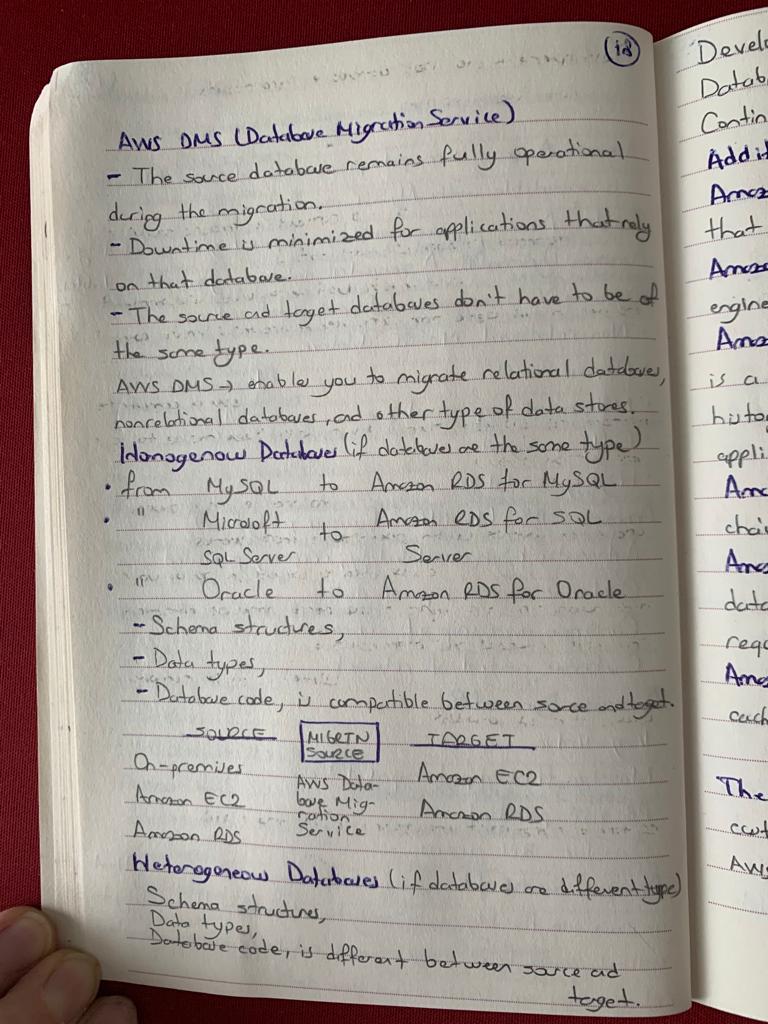 18
AWS DMS (Database Migration Service)
- The source database remains fully operational
during the migration.
- Downtime is minimized for applications that rely
on that database.
- The source ad target databases don't have to be of
the same type.
AWS DMS → enable you to migrate relational databases,
nonrelational databases, and other type of data stores.
Homogenous Databases (if databases are the same type)
• from MySQL to Amazon RDS for MySQL
• " Microsoft to Amazon RDS for SQL
SQL Server Server
• " Oracle to Amazon RDS for Oracle
- Schema structures,
- Data types,
- Database code, is compatible between sorce and target.
SOURCE MIGRTN TARGET
SOURCE
On-premises AWS Data- Amazon EC2
Amazon EC2 base Mig- Amazon RDS
ration
Amazon RDS Service
Heterogeneous Databases (if databases are different type)
Schema structures,
Data types,
Database code, is different between source ad
target.
Develo
Datab
Contin
Addit
Amaz
that
Amazo
engine
Amaz
is a
histo
appli
Ama
chai
Ama
data
requ
Amaz
cach
The
cust
AWS